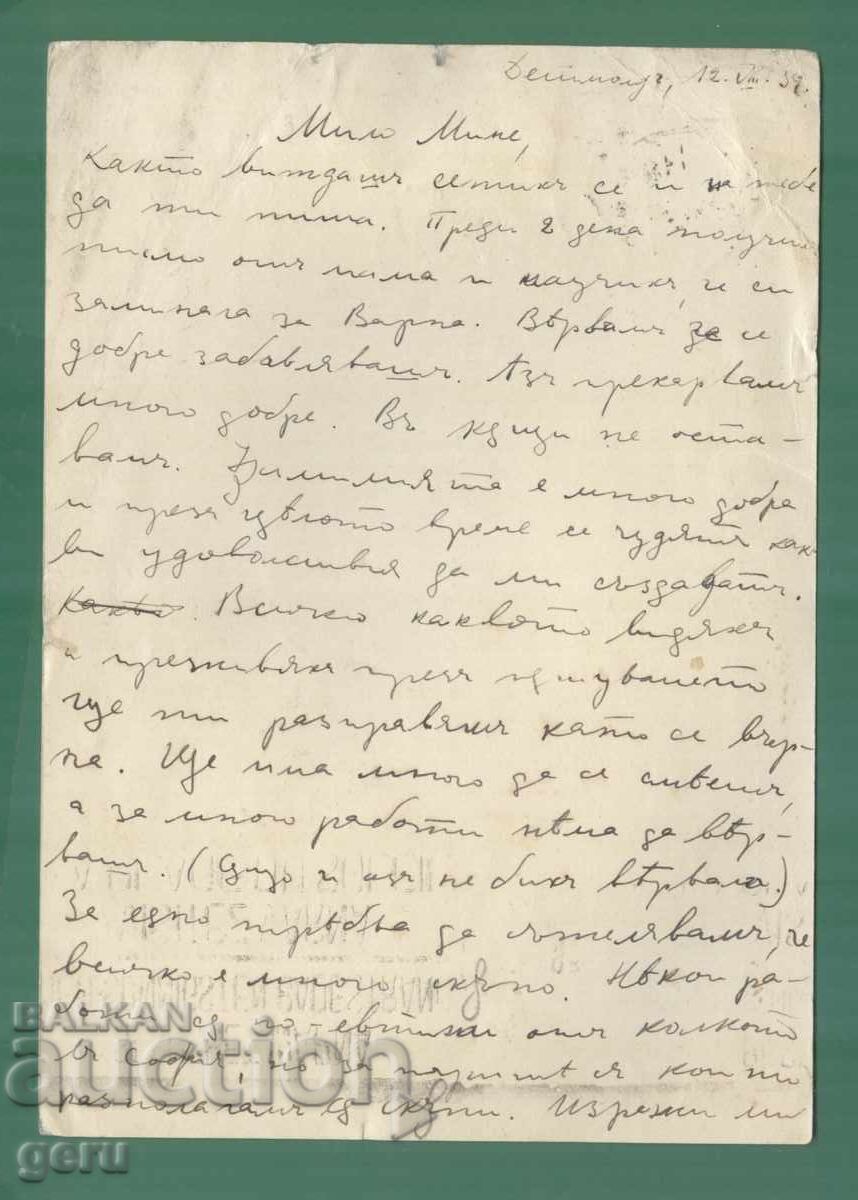 Детмолдъ, 12. VIII. 39.
Мило Мине,
Както виждашъ сетихъ се и на тебе
да ти пиша. Преди 2 дена получих
писмо отъ мама и научихъ, че си
заминала за Варна. Вѣрвамъ че се
добре забавлявашъ. Азъ прекарвамъ
много добре. Въ кѫщи не оста-
вамъ. Фамилията е много добра
и презъ цѣлото време се чудятъ как-
ви удоволствия да ми създаватъ.
Какво. Всичко каквото видяхъ
и преживяхъ презъ пѫтуването
ще ти разправямъ като се вър-
на. Ще има много да се смѣемъ,
а за много работи нѣма да вѣр-
вашъ. (Сѫщо и азъ не бихъ вѣрвала.)
За едно трѣбва да съжелявамъ, че
всичко е много скѫпо. Нѣкои ра-
боти сѫ по-евтини отъ колкото
въ София, но за парите съ които
разполагамъ сѫ скѫпи. Изрежи ми
BALKAN
auction
geru